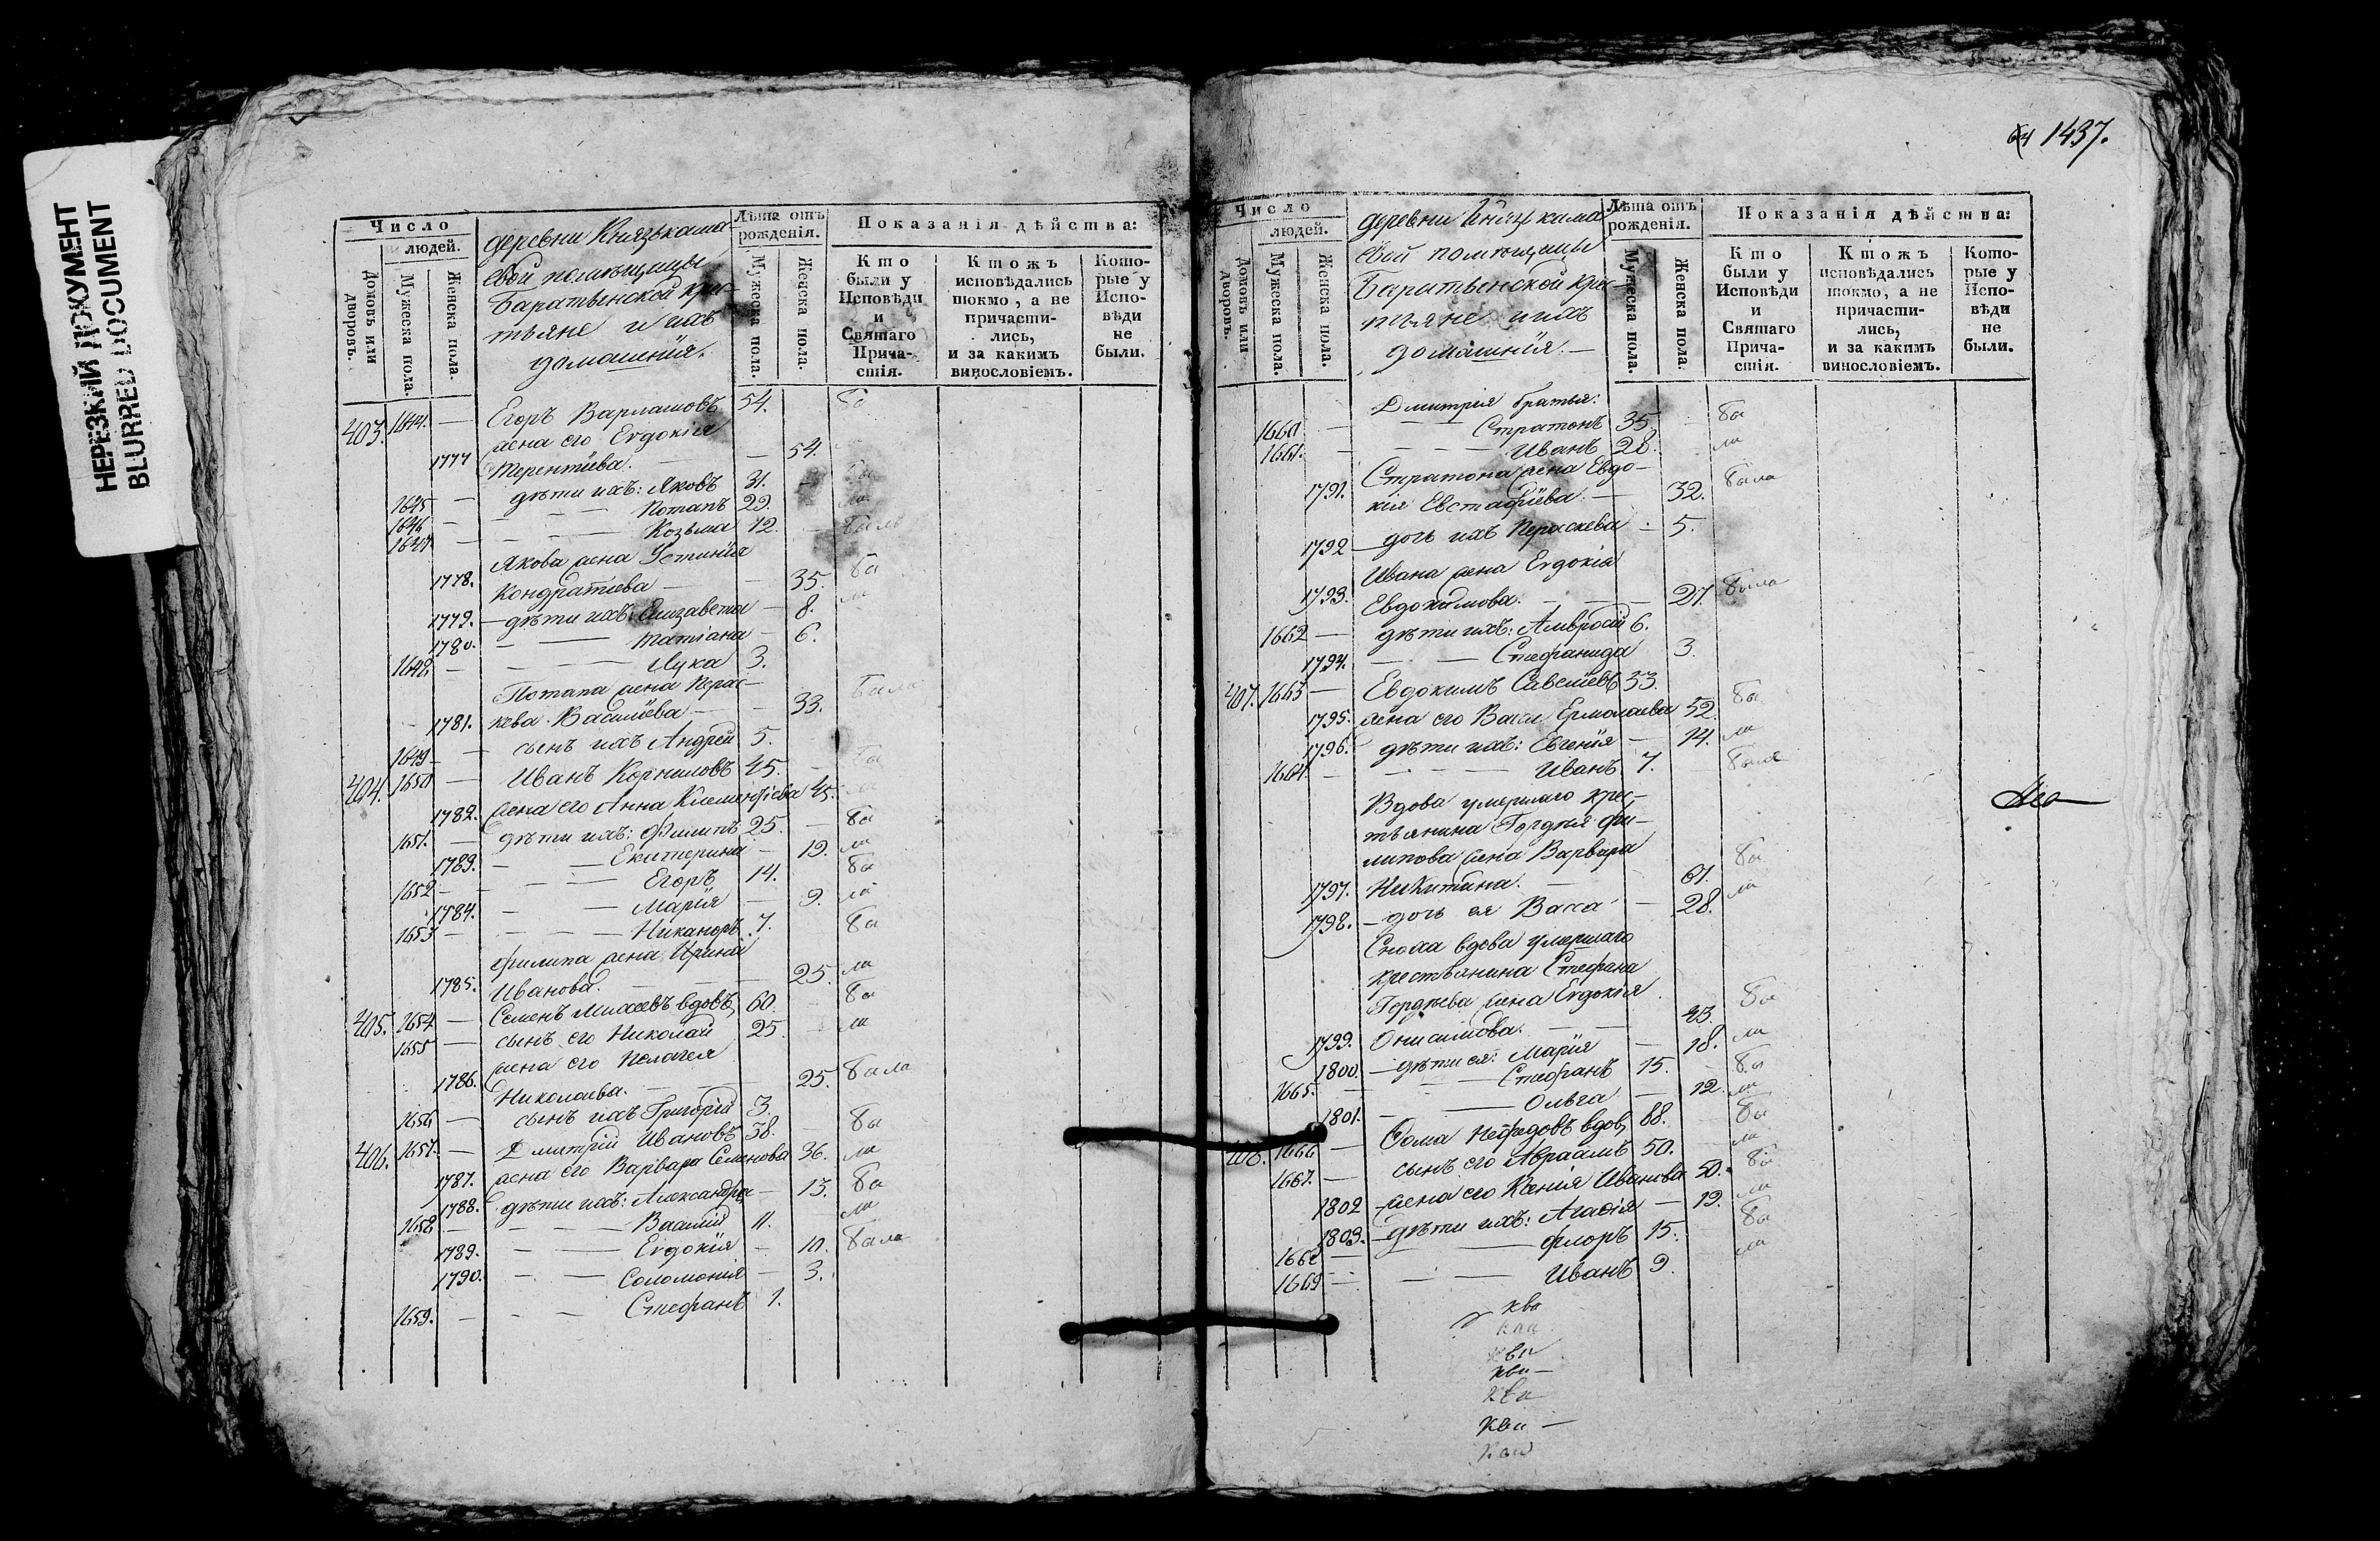 НЕРЕЗКИЙ ДОКУМЕНТ
BLURRED DOCUMENT
Число
людей.
Домовъ или дворовъ.
Мужеска пола.
Женска пола.
деревни Князькама
евой помѣщицы
Баратѣевской крес-
тьяне и ихъ
домашнія.
Лѣта отъ рожденія.
Мужеска пола.
Женска пола.
Показанія дѣйства:
Кто были у Исповѣди и Святаго Прича-стія.
Ктожъ исповѣдались токмо, а не причасти-лись, и за какимъ винословіемъ.
Кото-рые у Испо-вѣди не были.
403. 1644. — Егоръ Варламовъ 54. Бы
жена его Евдокія
1777 Терентіева. — 54. ли
1645 — дѣти ихъ: Яковъ 31. Бы
1646 — Потапъ 29. ли
1647 — Козьма 12. Былъ
Якова жена Устинія
1778. Кондратіева — 35. Бы
1779. — дѣти ихъ: Елизавета — 8. ли
1780. — Татіана — 6.
1648 — Лука 3.
Потапа жена Парас-
1781. кева Василіева — 33. Была
1649 — сынъ ихъ Андрей 5.
404. 1650 — Иванъ Корниловъ 45. Бы
1782. жена его Анна Клементіева 45. ли
1651. — дѣти ихъ: Филипъ 25. Бы
1783. — Екатерина — 19. ли
1652 — Егоръ 14. Бы
1784. — Марія — 9. ли
1653 — Никаноръ 7. Бы
Филипа жена Ирина
1785. Иванова. — 25. ли
405. 1654 — Семенъ Михеевъ вдовъ 60. Бы
1655 — сынъ его Николай 25 ли
жена его Пелагея
1786. Николаева. — 25. Была
1656 — сынъ ихъ Григорій 3.
406. 1657. — Дмитрій Ивановъ 38. Бы
1787. жена его Варвара Семенова 36. ли
1788. дѣти ихъ: Александра — 13. Бы
1658 — Василій 11. ли
1789. — Евдокія — 10. Была
1790. — Соломонія — 3.
1659. — Стефанъ 1.
1437.
Число
людей.
Домовъ или дворовъ.
Мужеска пола.
Женска пола.
деревни Князькама
евой помѣщицы
Баратѣевской крес-
тьяне и ихъ
домашнія. —
Лѣта отъ рожденія.
Мужеска пола.
Женска пола.
Показанія дѣйства:
Кто были у Исповѣди и Святаго Прича-стія.
Ктожъ исповѣдались токмо, а не причасти-лись, и за какимъ винословіемъ.
Кото-рые у Испо-вѣди не были.
Дмитрія братья:
1660 — Стратонъ 35 Бы
1661. — Иванъ 28. ли
Стратона жена Евдо-
1791. кія Евстафіева. — 32. Была
1792 — дочь ихъ Параскева — 5.
Ивана жена Евдокія
1793. Евдокимова. — 27. Была
1662 — дѣти ихъ: Амвросій 6.
1794. — Стефанида 3.
407. 1663 — Евдокимъ Савельевъ 33. Бы
1795. жена его Васса Ермолаева 52.
1796. дѣти ихъ: Евгенія — 14. ли
1664. — Иванъ 7.
Вдова умершаго крес-
тьянина Гордѣя Фи-
липова жена Варвара
1797. Никитина. — 61. Бы
1798. — дочь ея Васса — 28. ли
Сноха вдова умершаго
крестьянина Стефана
Гордѣева жена Евдокія
1799. Онисимова. — 43. Бы
1800. — дѣти ея: Марія — 18. ли
1665. — Стефанъ 15. Бы
1801. — Ольга — 12. ли
408. 1666 — Фома Нефедовъ вдов 88. Бы
1667. — сынъ его Авраамъ 50. ли
1802 — жена его Ксенія Иванова 50. Бы
1803. — дѣти ихъ: Агафія — 19. ли
1668 — Флоръ 15. Бы
1669 — Иванъ 9. ли
ква
ква
ква
ква —